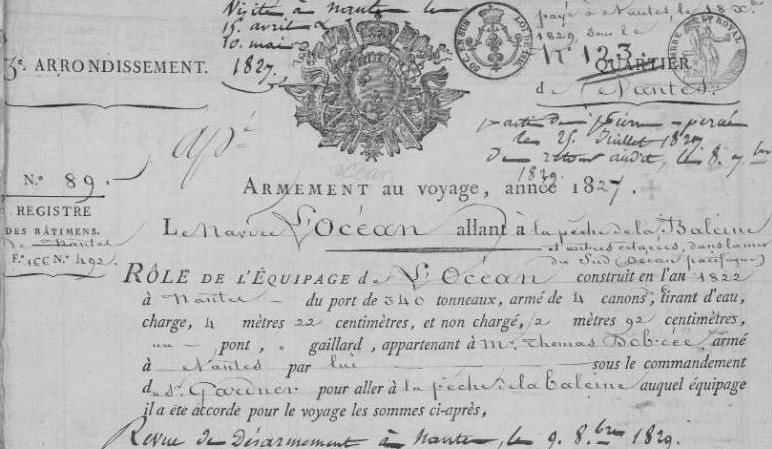 Visité à Nantes le
15 avril &
10 mai
1827.
payé à Nantes, le 18 Xbre
1829, sous le
N° 123
3e. ARRONDISSEMENT.
QUARTIER
de Nantes
parti de
le 25 Juillet 1827.
De retour audit, le 8. 7bre
1829.
apt
océan
N.° 89.
ARMEMENT au voyage, année 1827.
REGISTRE
DES BÂTIMENS.
de Nantes
F.° 166 N.° 492.
Le Navire L'Océan allant à la pêche de la Baleine
et autres cétacées, dans la mer
du Sud (Océan pacifique)
RÔLE DE L'ÉQUIPAGE de L'Océan construit en l'an 1822
à Nantes du port de 340 tonneaux, armé de 4 canons, tirant d'eau,
chargé, 4 mètres 22 centimètres, et non chargé, 2 mètres 92 centimètres,
un pont, " gaillard, appartenant à Mr. Thomas Dobrée, armé
à Nantes par lui sous le commandement
de Sr. Gardner pour aller à la pêche de la baleine auquel équipage
il a été accordé pour le voyage les sommes ci-après,
Revue de désarmement à Nantes, le 9. 8.bre 1829.